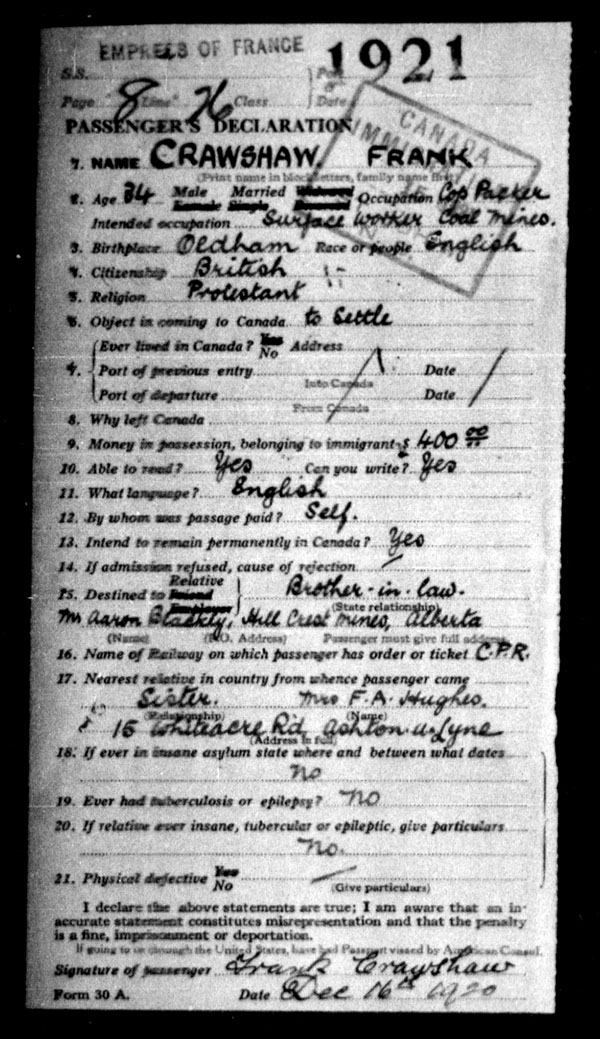 EMPRESS OF FRANCE 1921
S.S. Port
or
Page 8 Line 26 Class Date
PASSENGER'S DECLARATION
CANADA
1. NAME CRAWSHAW, FRANK
(Print name in block letters, family name first)
2. Age 34 Male Married Widowed Occupation Cop Packer
Female Single Divorced
Intended occupation Surface Worker Coal Mines.
3. Birthplace Oldham Race or people English
4. Citizenship British
5. Religion Protestant
6. Object in coming to Canada to Settle
Ever lived in Canada? Yes No Address
7. Port of previous entry Date
Into Canada
Port of departure Date
From Canada
8. Why left Canada
9. Money in possession, belonging to immigrant $ 400 00
10. Able to read? Yes Can you write? Yes
11. What language? English
12. By whom was passage paid? Self.
13. Intend to remain permanently in Canada? Yes
14. If admission refused, cause of rejection
Relative
15. Destined to Friend Brother-in-law.
Employer (State relationship)
Mr Aaron Blackly, Hill Crest Mines, Alberta
(Name) (P.O. Address) Passenger must give full address
16. Name of Railway on which passenger has order or ticket C.P.R.
17. Nearest relative in country from whence passenger came
Sister. Mrs F. A. Hughes.
(Relationship) (Name)
15 Whiteacre Rd, Ashton-u-Lyne
(Address in full)
18. If ever in insane asylum state where and between what dates
No
19. Ever had tuberculosis or epilepsy? No
20. If relative ever insane, tubercular or epileptic, give particulars
No.
21. Physical defective Yes
No
(Give particulars)
I declare the above statements are true; I am aware that an in-
accurate statement constitutes misrepresentation and that the penalty
is a fine, imprisonment or deportation.
If going to or through the United States, have had Passport vissed by American Consul.
Signature of passenger Frank Crawshaw
Form 30 A. Date Dec 16th 1920